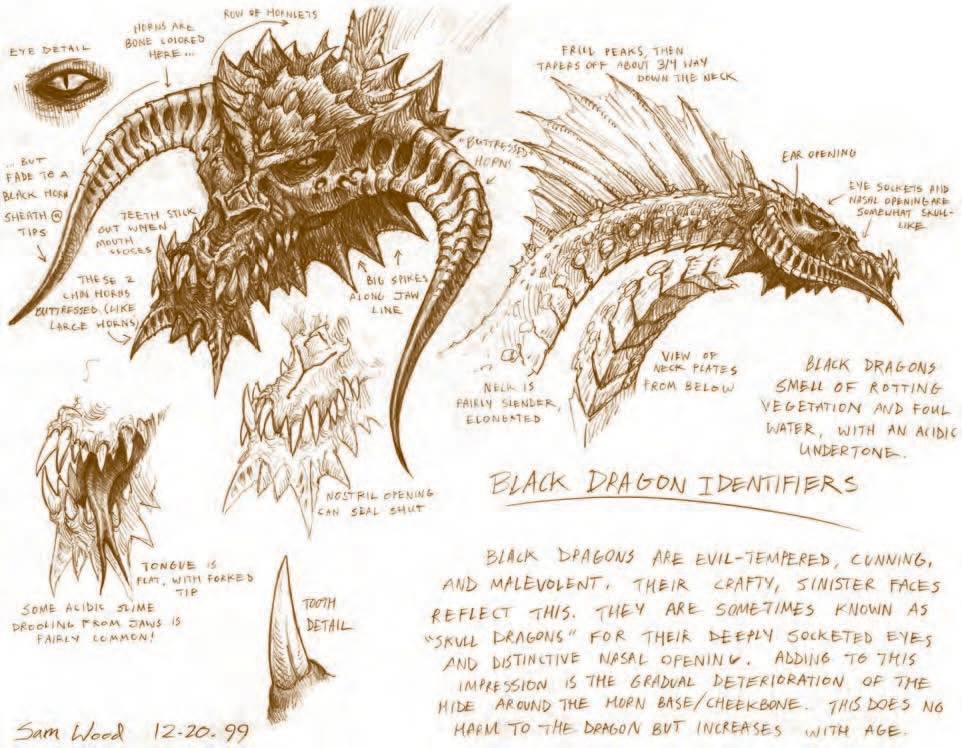 EYE DETAIL
HORNS ARE
BONE COLORED
HERE...
ROW OF HORNLETS
... BUT
FADE TO A
BLACK HORN
SHEATH @
TIPS
TEETH STICK
OUT WHEN
MOUTH
CLOSES
THESE 2
CHIN HORNS
BUTTRESSED (LIKE
LARGE HORNS)
BIG SPIKES
ALONG JAW
LINE
"BUTTRESSED"
HORNS
FRILL PEAKS, THEN
TAPERS OFF ABOUT 3/4 WAY
DOWN THE NECK
EAR OPENING
EYE SOCKETS AND
NASAL OPENING ARE
SOMEWHAT SKULL-
LIKE
NECK IS
FAIRLY SLENDER,
ELONGATED
VIEW OF
NECK PLATES
FROM BELOW
BLACK DRAGONS
SMELL OF ROTTING
VEGETATION AND FOUL
WATER, WITH AN ACIDIC
UNDERTONE.
NOSTRIL OPENING
CAN SEAL SHUT
TONGUE IS
FLAT, WITH FORKED
TIP
SOME ACIDIC SLIME
DROOLING FROM JAWS IS
FAIRLY COMMON!
TOOTH
DETAIL
BLACK DRAGON IDENTIFIERS
BLACK DRAGONS ARE EVIL-TEMPERED, CUNNING,
AND MALEVOLENT. THEIR CRAFTY, SINISTER FACES
REFLECT THIS. THEY ARE SOMETIMES KNOWN AS
"SKULL DRAGONS" FOR THEIR DEEPLY SOCKETED EYES
AND DISTINCTIVE NASAL OPENING. ADDING TO THIS
IMPRESSION IS THE GRADUAL DETERIORATION OF THE
HIDE AROUND THE HORN BASE/CHEEKBONE. THIS DOES NO
HARM TO THE DRAGON BUT INCREASES WITH AGE.
Sam Wood 12-20-99